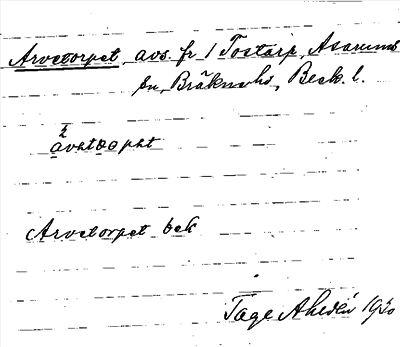 Arvetorpet avs. fr / Tostarp, Asarums
sn, Bräknehd, Bleck. l.
Arvetorpet bek
Tage Ahldén 1930